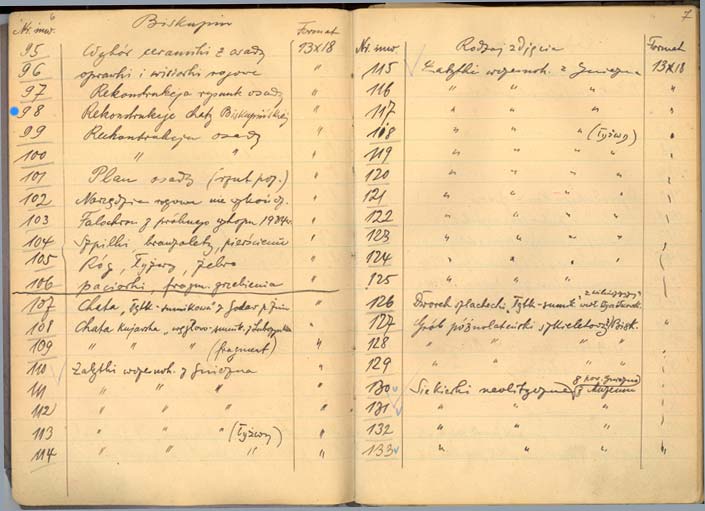 6
Nr. inw. Biskupin Format
95 Wybór ceramiki z osady 13x18
96 oprawki i wisiorki rogowe "
97 Rekonstrukcja rysunk. osady "
98 Rekonstrukcje chaty Biskupińskiej "
99 Rekonstrukcja osady "
100 " " "
101 Plan osady (rzut poz.) "
102 Narzędzia rogowe "
103 Falochron z próbnego wykopu 1934r. "
104 Szpilki bransolety, pierścienie "
105 Róg, łyżwy, żebro "
106 paciorki, fragm. grzebienia "
107 Chata "
108 Chata kujawska "
109 " " (fragment) "
110 Zabytki wczesnoh. z Gniezna "
111 " " " "
112 " " " "
113 " " " (łyżwy) "
114 " " " "
7
Nr inw Rodzaj zdjęcia Format
115 Zabytki wczesnoh. z Gniezna 13x18
116 " " " "
117 " " " "
118 " " " (łyżwy) "
119 " " " "
120 " " " "
121 " " " "
122 " " " "
123 " " " "
124 " " " "
125 " " "
126 Dworek szlachecki
127 Grób późnolateński szkieletowy Bisk.
128 " " " "
129 " " "
130 Siekierki neolityczne z Muzeum
131 " " "
132 " " "
133 " " "